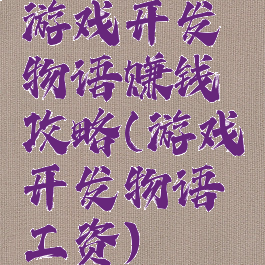 游戏开发
物语赚钱
攻略(游戏
开发物语
工资)